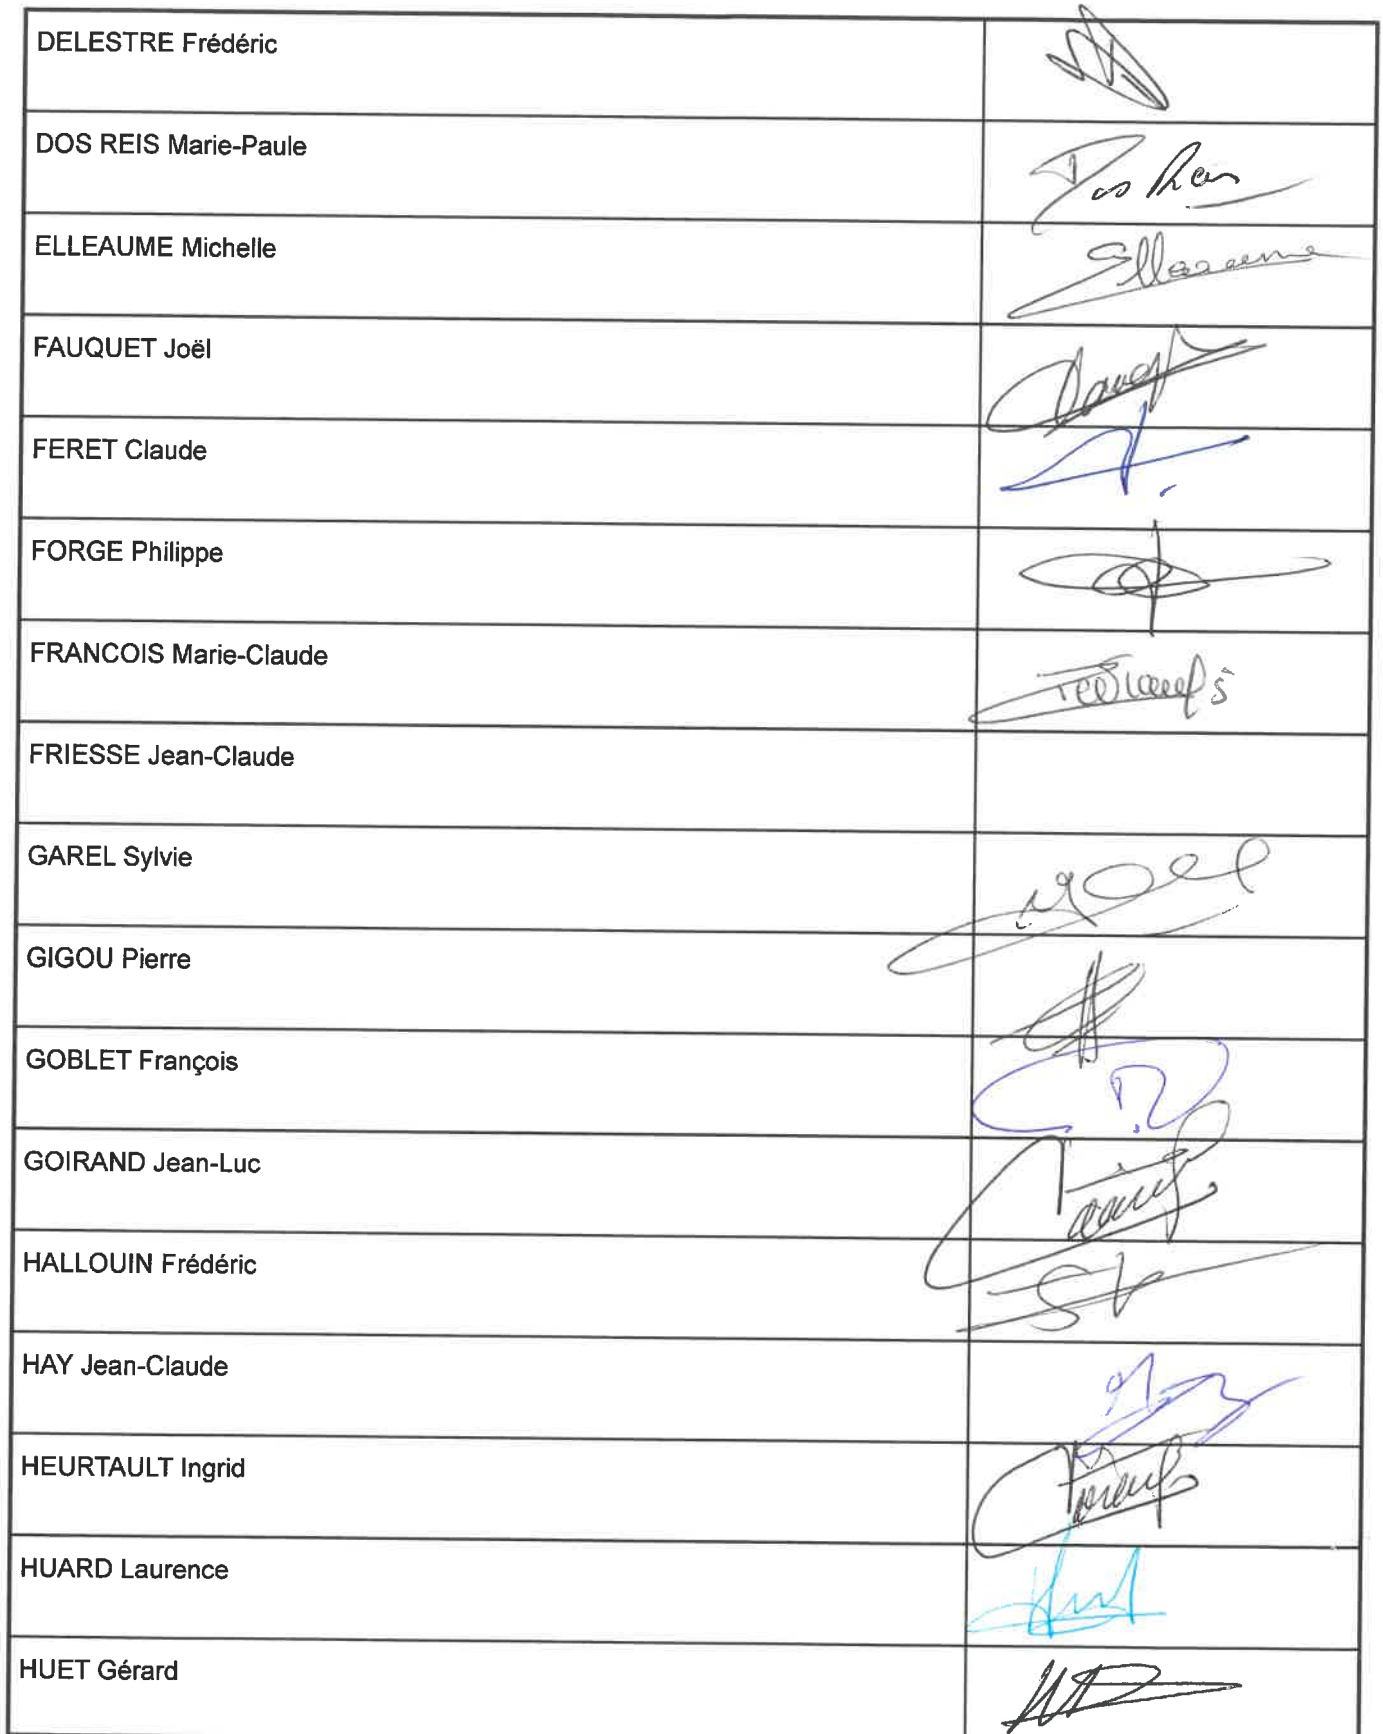 DELESTRE Frédéric
DOS REIS Marie-Paule
Dos Reis
ELLEAUME Michelle
Elleaume
FAUQUET Joël
FERET Claude
FORGE Philippe
FRANCOIS Marie-Claude
FRIESSE Jean-Claude
GAREL Sylvie
GIGOU Pierre
GOBLET François
GOIRAND Jean-Luc
HALLOUIN Frédéric
HAY Jean-Claude
HEURTAULT Ingrid
HUARD Laurence
HUET Gérard